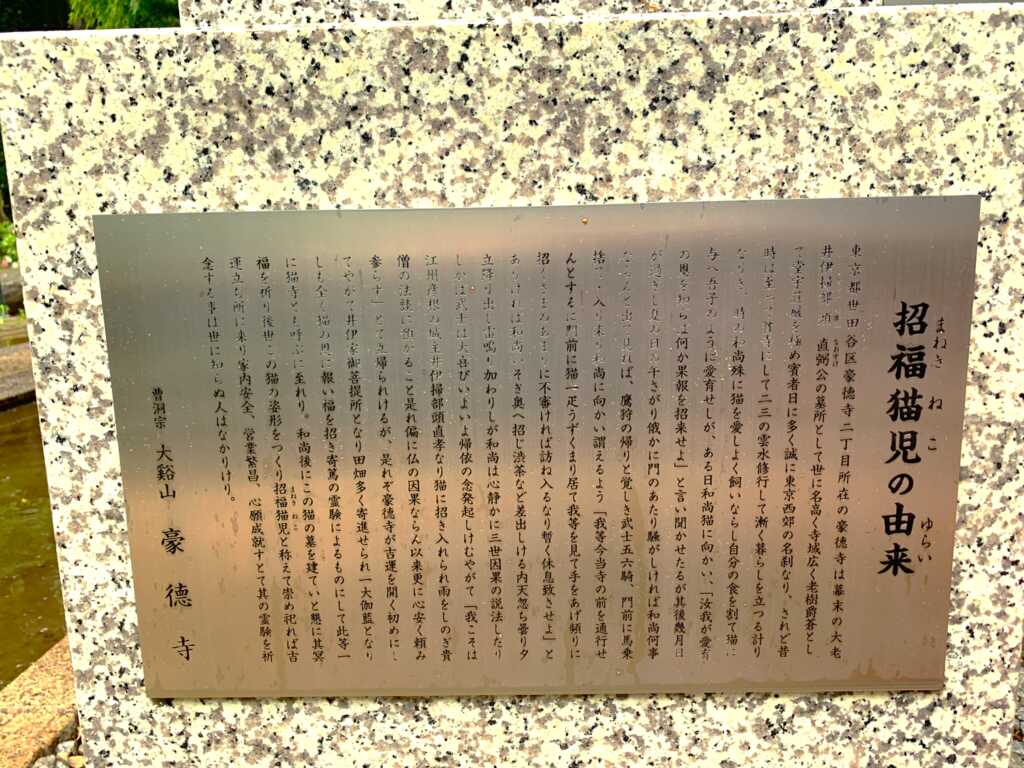 招福猫児の由来
まねき ねこ ゆらい
東京都世田谷区豪徳寺二丁目所在の豪徳寺は幕末の大老
井伊掃部頭直弼公の墓所として世に名高く寺域広く老樹爵苍とし
なおすけ
て堂宇荘厳を極め賓者日に多く誠に東京西郊の名刹なり、されど昔
時は至って貧寺にして二三の雲水修行して漸く暮らしを立つる計り
なりき。時の和尚殊に猫を愛しよく飼いならし自分の食を割て猫に
与へ吾子のように愛育せしが、ある日和尚猫に向かい、「汝我が愛育
の恩を知らば何か果報を招来せよ」と言い聞かせたるが其後幾月日
が過ぎし夏の日の午さがり俄かに門のあたり騒がしければ和尚何事
ならんと出て見れば、鷹狩の帰りと覚しき武士五六騎、門前に馬乗
捨て、入り来り和尚に向かい謂えるよう「我等今当寺の前を通行せ
んとするに門前に猫一疋うずくまり居て我等を見て手をあげ頻りに
招くさまのあまりに不審ければ訪ね入るなり暫く休息致させよ」と
ありければ和尚いそぎ奥へ招じ渋茶など差出しける内天忽ち曇り夕
立降り出し雷鳴り加わりしが和尚は心静かに三世因果の説法したり
しかば武士は大喜びいよいよ帰依の念発起しけむやがて「我こそは
江州彦根の城主井伊掃部頭直孝なり猫に招き入れられ雨をしのぎ貴
僧の法談に預かること是れ偏に仏の因果ならん以来更に心安く頼み
参らす」とて立帰られけるが、是れぞ豪徳寺が吉運を開く初めにし
てやがて井伊家御菩提所となり田畑多く寄進せられ一大伽藍となり
しも全く猫の恩に報い福を招き寄篤の霊験によるものにして此寺一
に猫寺とも呼ぶに至れり。和尚後にこの猫の墓を建ていと懇に其冥
福を祈り後世この猫の姿形をつくり招福猫児と称えて崇め祀れば吉
まねき ねこ
運立ち所に来り家内安全、営業繁昌、心願成就すとて其の霊験を祈
念する事は世に知らぬ人はなかりけり。
曹洞宗 大谿山 豪徳寺